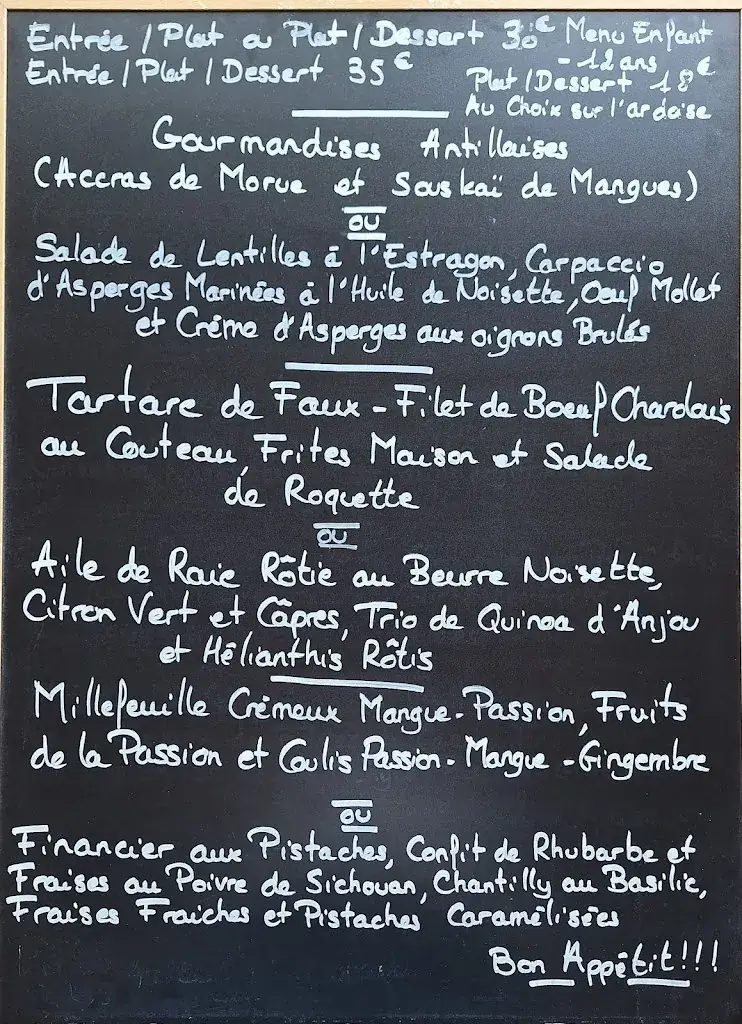 Entrée / Plat ou Plat / Dessert 30€
Entrée / Plat / Dessert 35€
Menu Enfant
- 12 ans
Plat / Dessert 18€
Au Choix sur l'ardoise
Gourmandises Antillaises
(Accras de Morue et Souskaï de Mangues)
ou
Salade de Lentilles à l'Estragon, Carpaccio
d'Asperges Marinées à l'Huile de Noisette, Oeuf Mollet
et Crème d'Asperges aux oignons Brulés
Tartare de Faux-Filet de Boeuf Charolais
au Couteau, Frites Maison et Salade
de Roquette
ou
Aile de Raie Rôtie au Beurre Noisette,
Citron Vert et Câpres, Trio de Quinoa d'Anjou
et Hélianthis Rôtis
Millefeuille Crémeux Mangue-Passion, Fruits
de la Passion et Coulis Passion-Mangue-Gingembre
ou
Financier aux Pistaches, Confit de Rhubarbe et
Fraises au Poivre de Sichouan, Chantilly au Basilic,
Fraises Fraiches et Pistaches Caramélisées
Bon Appétit!!!